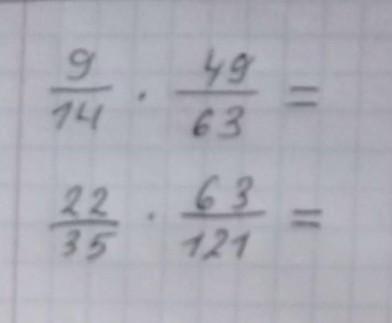 9/14 · 49/63 =
22/35 · 63/121 =